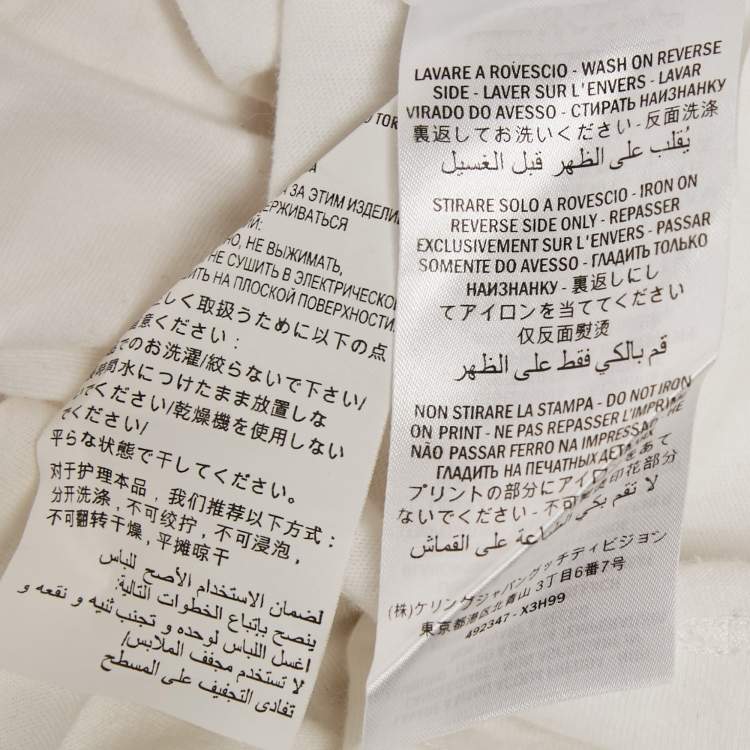 TOK
А
ЗА ЭТИМ ИЗДЕЛИ
ЕРЖИВАТЬСЯ
НО, НЕ ВЫЖИМАТЬ,
НЕ СУШИТЬ В ЭЛЕКТРИЧЕСКО
ИТЬ НА ПЛОСКОЙ ПОВЕРХНОСТИ
しく取扱うために以下の点
意ください:
でのお洗濯/絞らないで下さい/
時間水につけたまま放置しな
でください/乾燥機を使用しない
でください/
平らな状態で干してください。
对于护理本品，我们推荐以下方式：
分开洗涤，不可绞拧，不可浸泡，
不可翻转干燥，平摊晾干
لضمان الاستخدام الأصح للباس
ينصح بإتباع الخطوات التالية:
اغسل اللباس لوحده و تجنب ثنيه و نقعه و
لا تستخدم مجفف الملابس/
تفادى التجفيف على المسطح
LAVARE A ROVESCIO - WASH ON REVERSE
SIDE - LAVER SUR L'ENVERS - LAVAR
VIRADO DO AVESSO - СТИРАТЬ НАИЗНАНКУ
裏返してお洗いください - 反面洗涤
يُقلب على الظهر قبل الغسيل
STIRARE SOLO A ROVESCIO - IRON ON
REVERSE SIDE ONLY - REPASSER
EXCLUSIVEMENT SUR L'ENVERS - PASSAR
SOMENTE DO AVESSO - ГЛАДИТЬ ТОЛЬКО
НАИЗНАНКУ - 裏返しにし
てアイロンを当ててください
仅反面熨烫
قم بالكي فقط على الظهر
NON STIRARE LA STAMPA - DO NOT IRON
ON PRINT - NE PAS REPASSER L'IMPRIMÉ
NÃO PASSAR FERRO NA IMPRESSÃO - НЕ
ГЛАДИТЬ НА ПЕЧАТНЫХ ДЕТА
プリントの部分にアイロ をあて
ないでください - 不可 印花部分
لا تقم بكي الطباعة على القماش
(株)ケリングジャパングッチディビジョン
東京都港区北青山 3丁目6番7号
492347 - X3H99